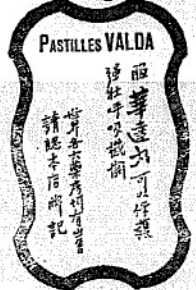 PASTILLES VALDA
服華達丸可以保護
强壯呼吸機關
世界各大藥房均有出售
請認本店牌記